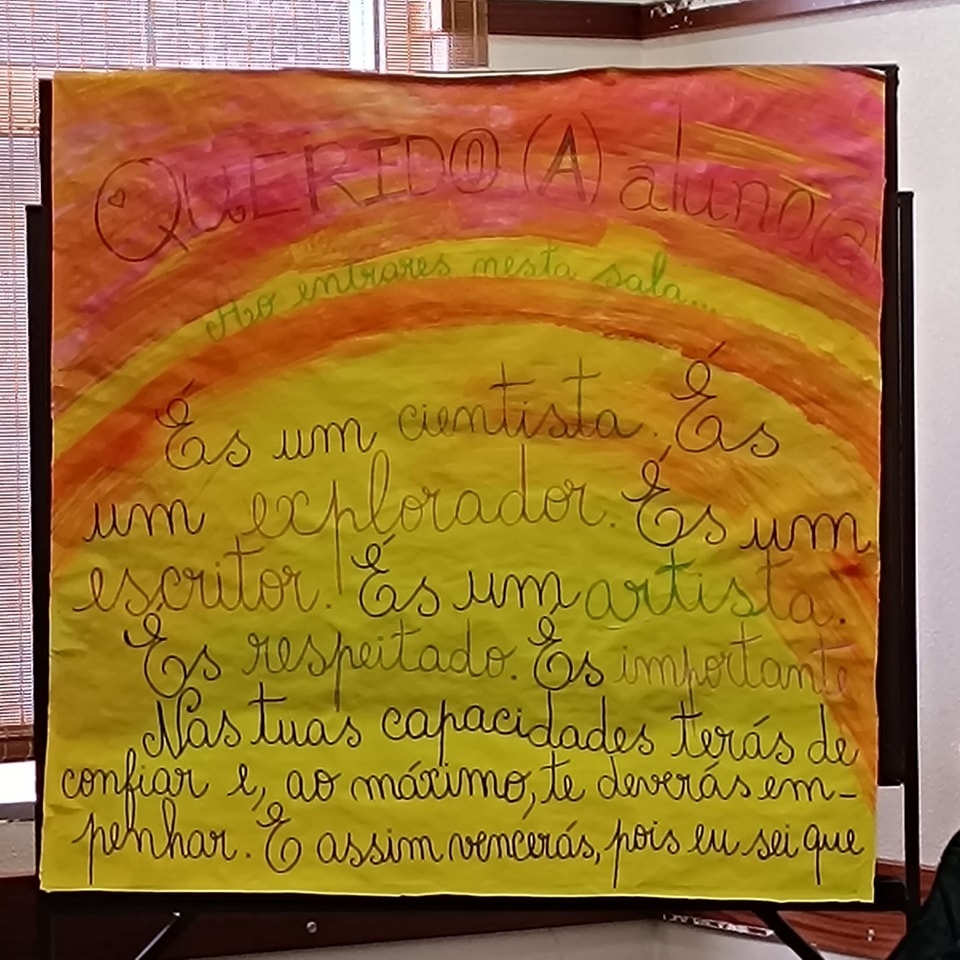 QUERIDO (A) aluno(a)
Ao entrares nesta sala...
És um cientista. És
um explorador. És um
escritor. És um artista.
És respeitado. És importante
Nas tuas capacidades terás de
confiar e, ao máximo, te deverás em-
penhar. E assim vencerás, pois eu sei que